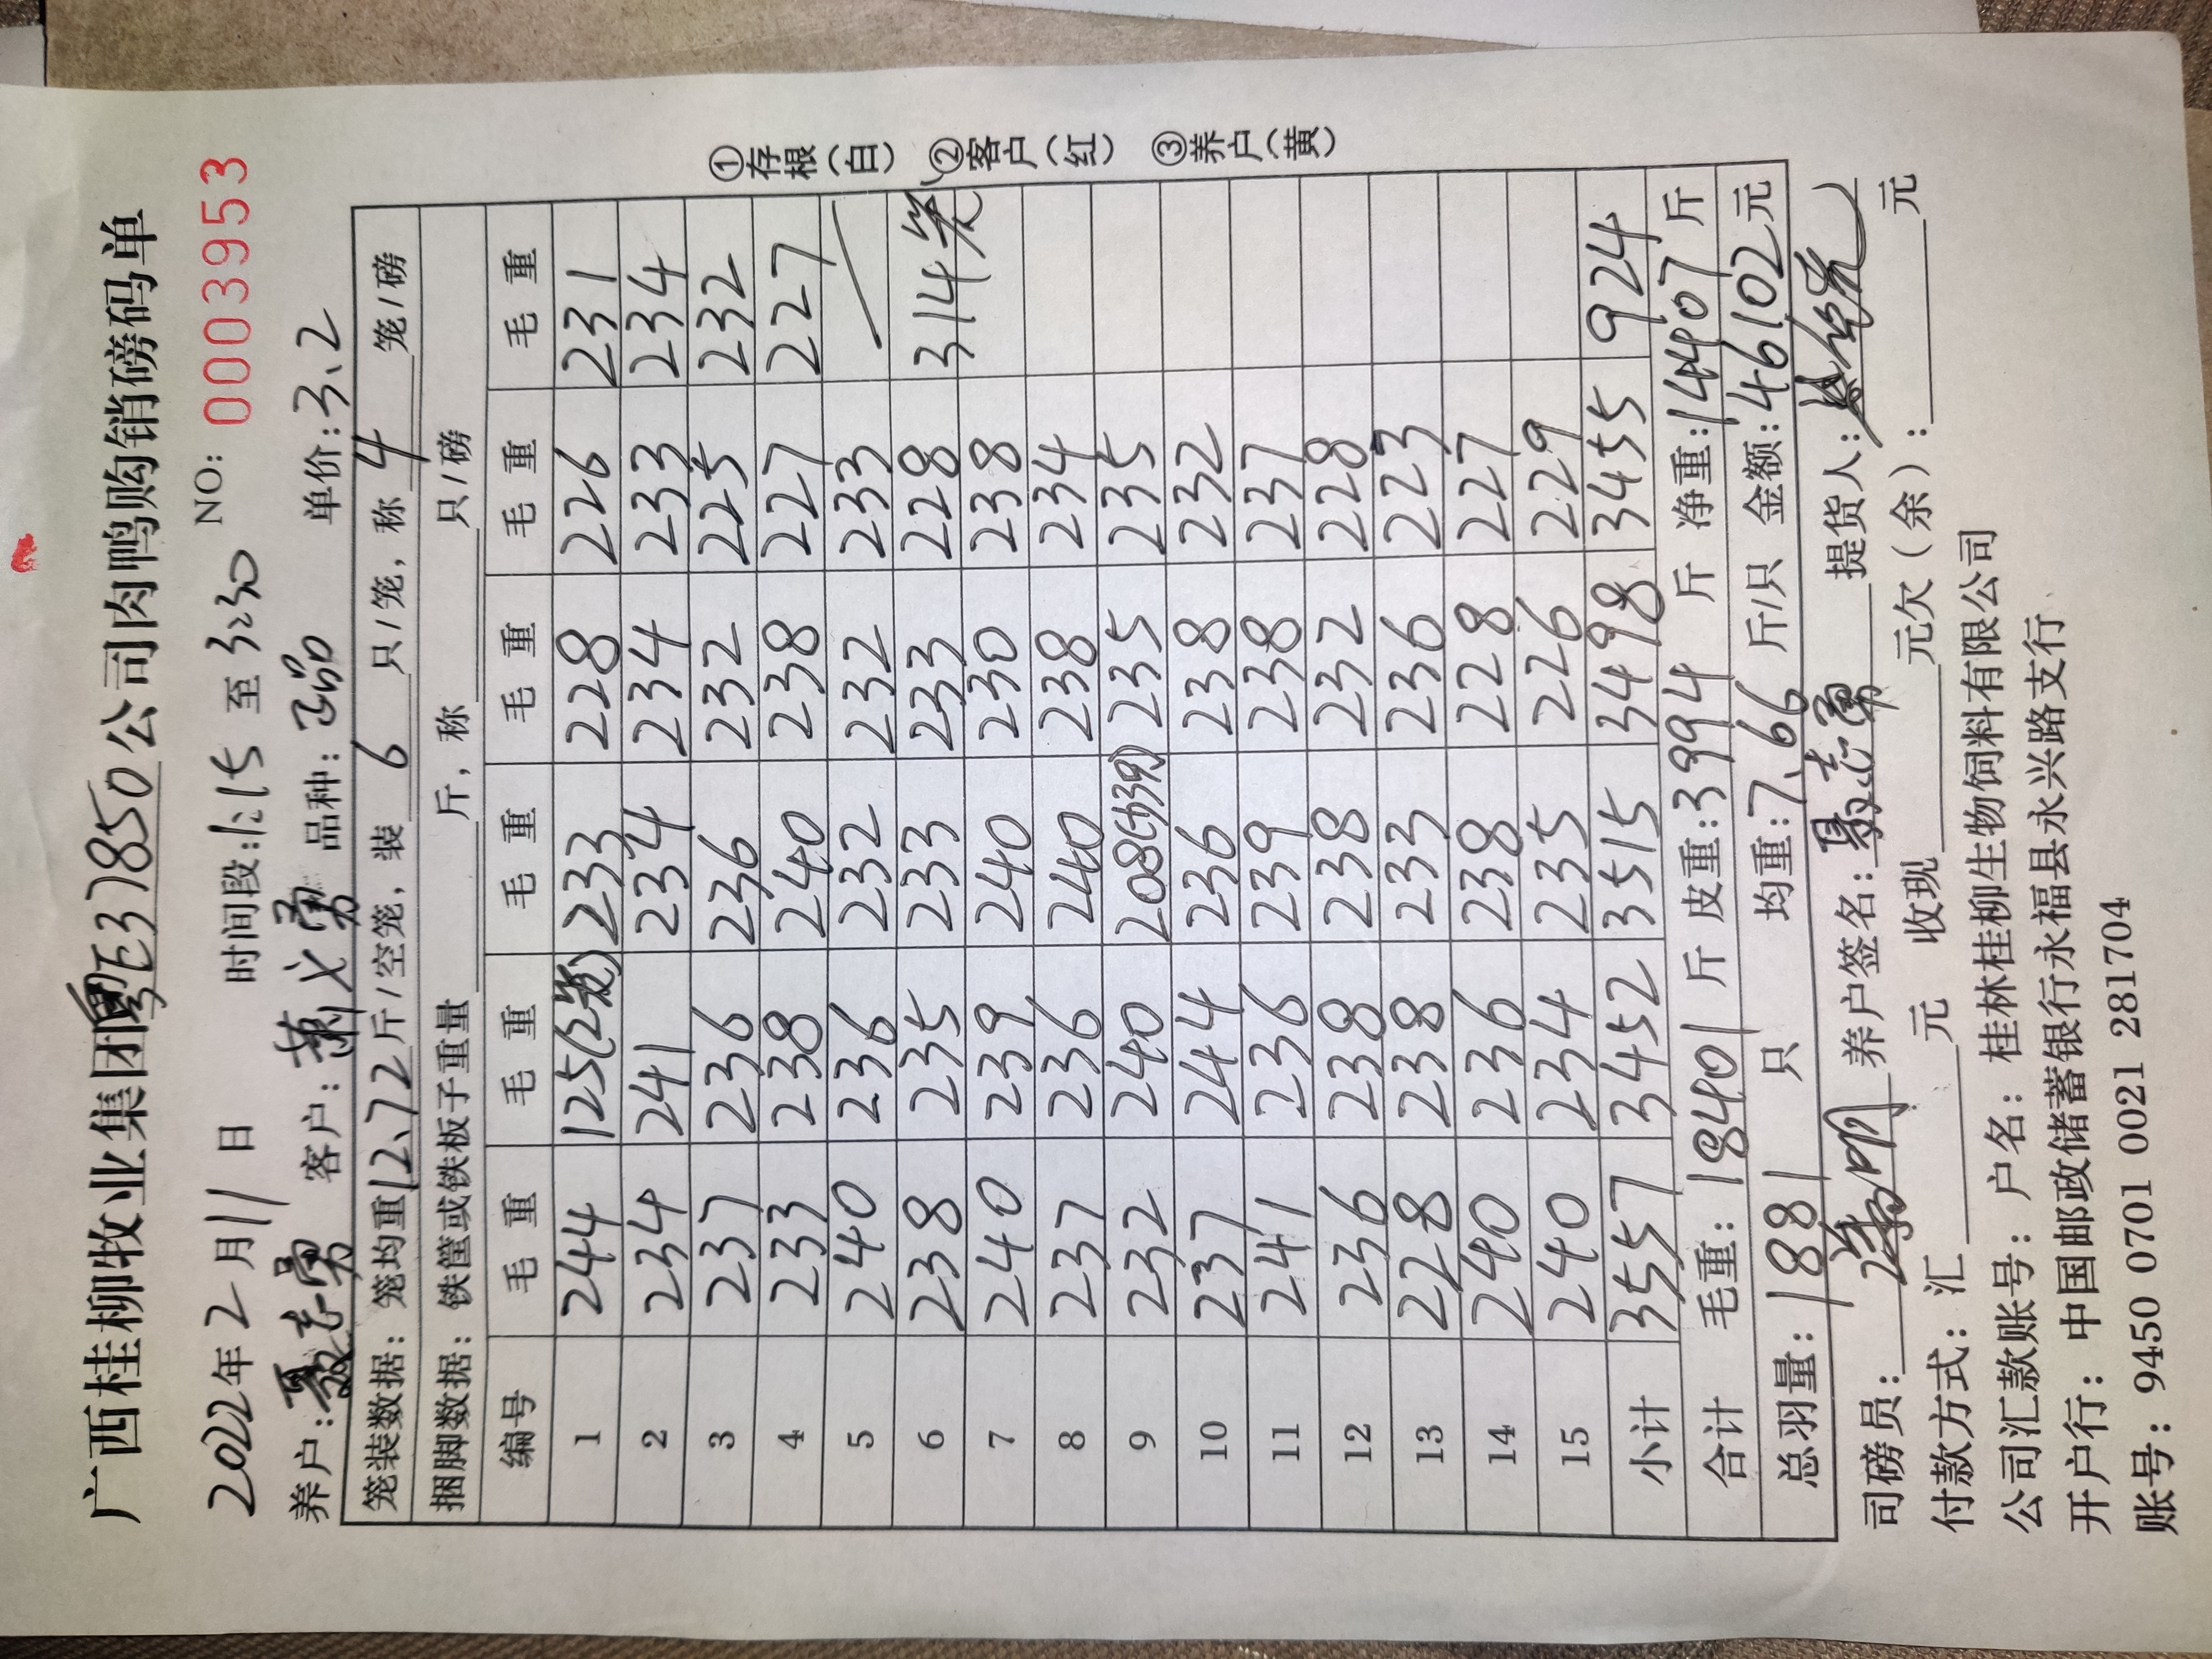 广西桂柳牧业集团粤E37850公司肉鸭购销磅码单
2022年2月11日 时间段:1:15至3:30 NO: 0003953
养户:聂志勇 客户:萧义勇 品种: 单价:3.2
笼装数据:笼均重12.72斤/空笼,装6只/笼,称4笼/磅
捆脚数据:铁筐或铁板子重量 斤,称 只/磅
编号 毛重 毛重 毛重 毛重 毛重 毛重
1 244 125(2笼) 233 228 226 231
2 234 241 234 234 233 234
3 237 236 236 232 225 232
4 233 238 240 238 227 227
5 240 236 232 232 233
6 238 235 233 233 228 314笼
7 240 239 240 230 238
8 237 236 240 238 234
9 232 240 208(的39) 235 235
10 237 244 236 238 232
11 241 236 239 238 237
12 236 238 238 232 228
13 228 238 233 236 223
14 240 236 238 228 227
15 240 234 235 226 229
小计 3557 3452 3515 3498 3455 924
合计 毛重:18401斤 皮重:3994斤 净重:14407斤
总羽量:1881只 均重:7.66斤/只 金额:46102元
司磅员: 养户签名:聂志勇 提货人:
付款方式:汇 元 收现 元欠(余): 元
公司汇款账号:户名:桂林桂柳生物饲料有限公司
开户行:中国邮政储蓄银行永福县永兴路支行
账号:9450 0701 0021 281704
①存根(白) ②客户(红) ③养户(黄)